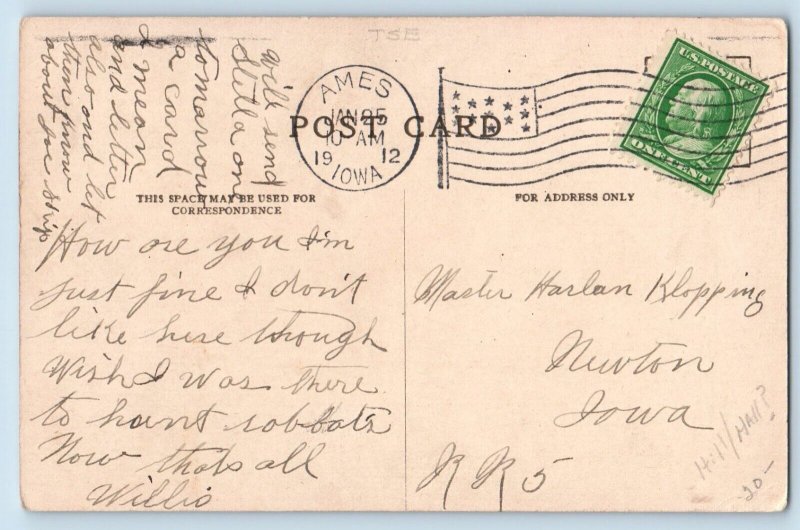 JSE
will send
Stella on
tomarrow
a card
I mean
and letter
also and let
them know
about
AMES
JAN 25
10 AM
19 12
IOWA
POST CARD
U.S. POSTAGE
ONE CENT
THIS SPACE MAY BE USED FOR
CORRESPONDENCE
FOR ADDRESS ONLY
How are you I'm
just fine I don't
like here though
Wish I was there
to hunt rabbats
Now thats all
Willis
Master Harlan Klopping
Newton
Iowa
R R 5
Hill/Hall?
20-